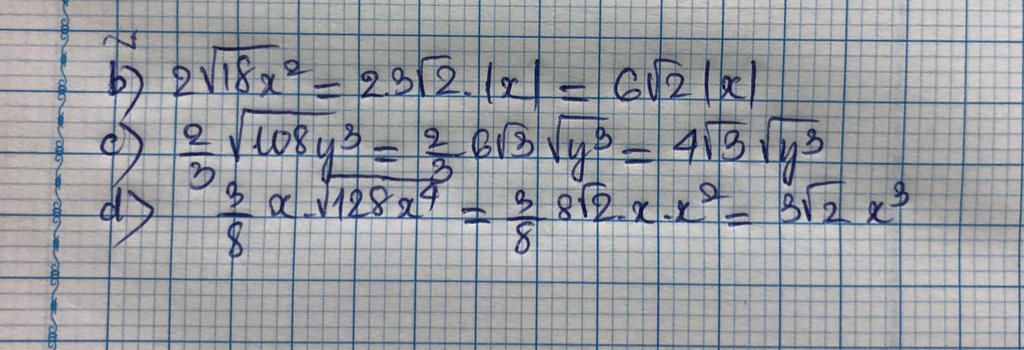 b) 2√18x² = 2.3√2.|x| = 6√2|x|
c) 2/3 √108y³ = 2/3 6√3 √y³ = 4√3 √y³
d) 3/8 x.√128x⁴ = 3/8 8√2.x.x² = 3√2 x³